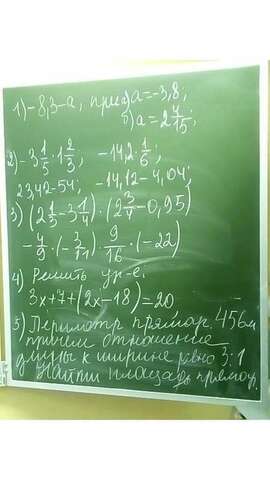 1) -8,3-a, при a) a=-3,8;
б) a=2 4/15;
2) -3 1/5 · 1 2/3; -14,2 · 1/6;
23,42-54; -14,12-4,04;
3) (2 1/3 - 3 1/4) · (2 3/4 - 0,95)
-4/9 · (-3/11) · 9/16 · (-22)
4) Решить ур-е:
3x+7+(2x-18)=20
5) Периметр прямоуг. 456м
причем отношение
длины к ширине равно 3:1
Найти площадь прямоуг.